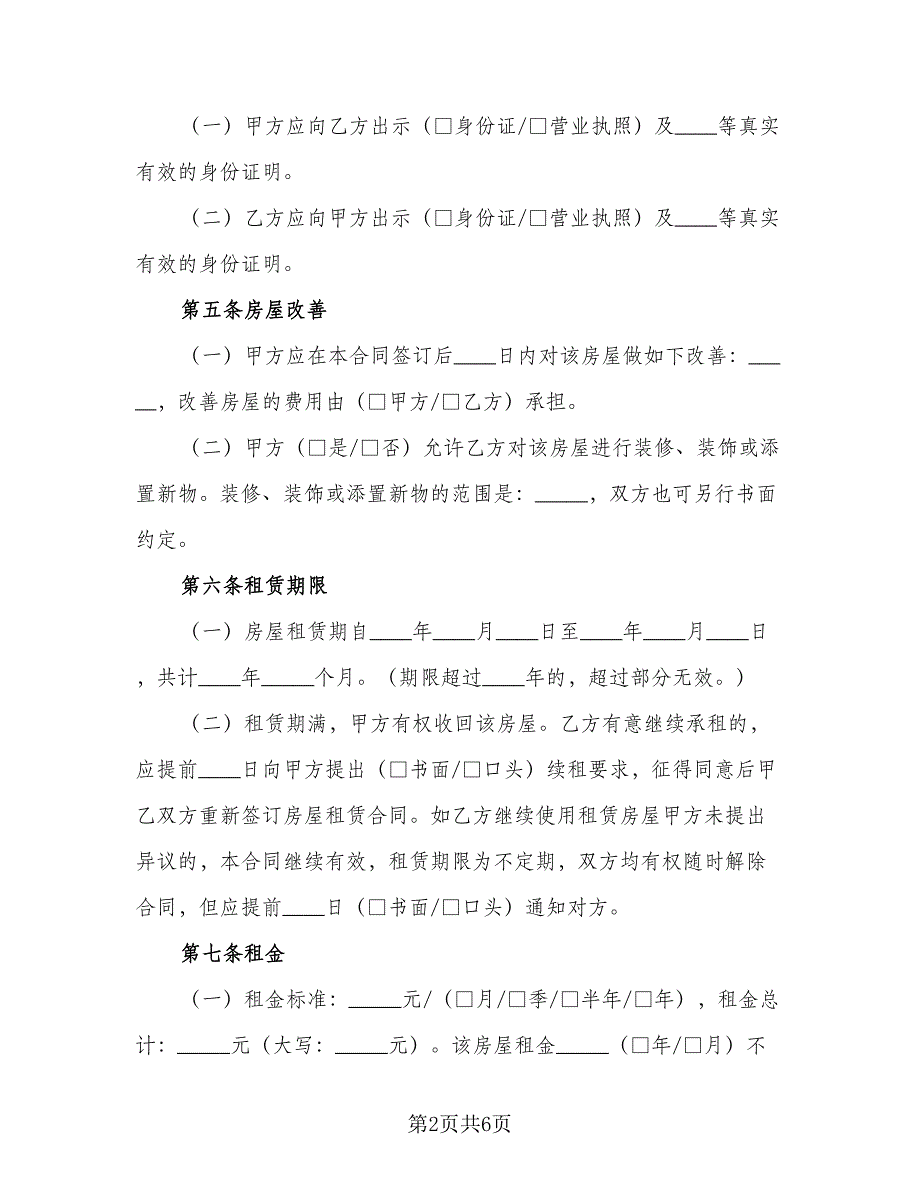 （一）甲方应向乙方出示（□身份证/□营业执照）及____等真实
有效的身份证明。
（二）乙方应向甲方出示（□身份证/□营业执照）及____等真实
有效的身份证明。
第五条房屋改善
（一）甲方应在本合同签订后____日内对该房屋做如下改善：___
__，改善房屋的费用由（□甲方/□乙方）承担。
（二）甲方（□是/□否）允许乙方对该房屋进行装修、装饰或添
置新物。装修、装饰或添置新物的范围是：_____，双方也可另行书面
约定。
第六条租赁期限
（一）房屋租赁期自____年____月____日至____年____月____日
，共计____年_____个月。（期限超过____年的，超过部分无效。）
（二）租赁期满，甲方有权收回该房屋。乙方有意继续承租的，
应提前____日向甲方提出（□书面/□口头）续租要求，征得同意后甲
乙双方重新签订房屋租赁合同。如乙方继续使用租赁房屋甲方未提出
异议的，本合同继续有效，租赁期限为不定期，双方均有权随时解除
合同，但应提前____日（□书面/□口头）通知对方。
第七条租金
（一）租金标准：_____元/（□月/□季/□半年/□年），租金总
计：_____元（大写：_____元）。该房屋租金_____（□年/□月）不
第2页共6页